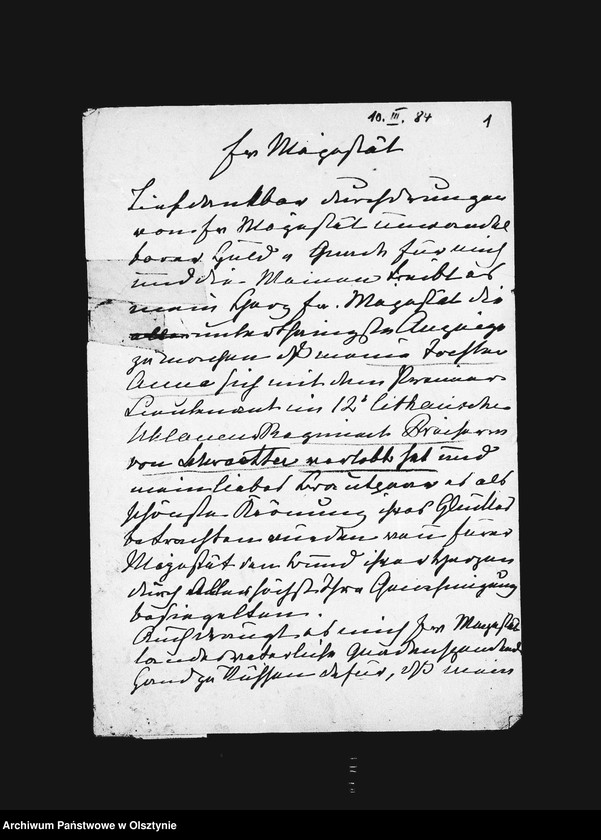 10. III. 84
1
Ew Majestät
Tiefdankbar durchdrungen
von Ew Majestät unwandel
barer Huld u Gnade für mich
und die Meinen treibt es
mein Herz Ew. Majestät die
allerunterthänigste Anzeige
zu machen daß meine Tochter
Anna sich mit dem Premier
Lieutenant im 12t lithauischen
Uhlanen Regiment Freiherrn
von verlobt hat und
mein liebes Brautpaar es als
schönste Krönung ihres Glückes
betrachten würden wenn Eurer
Majestät den Bund ihrer Herzen
durch Allerhöchst Ihre Genehmigung
besiegelten.
Auch drängt es mich Ew Majestät
landesväterliche Gnadenspendende
Hand zu küssen dafür, daß mein
Archiwum Państwowe w Olsztynie